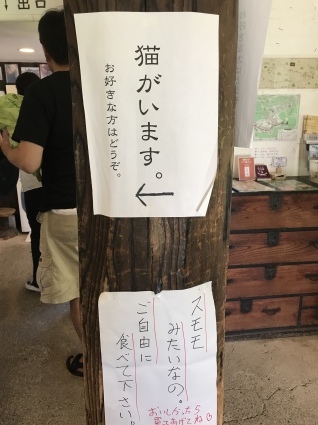 出口
猫がいます。
お好きな方はどうぞ。
スモモ
みたいなの。
ご自由に
食べて下さい。
おいしかったら
買ってあげてね